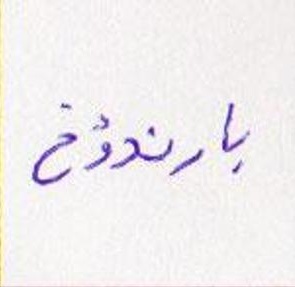 بارندوؤخ